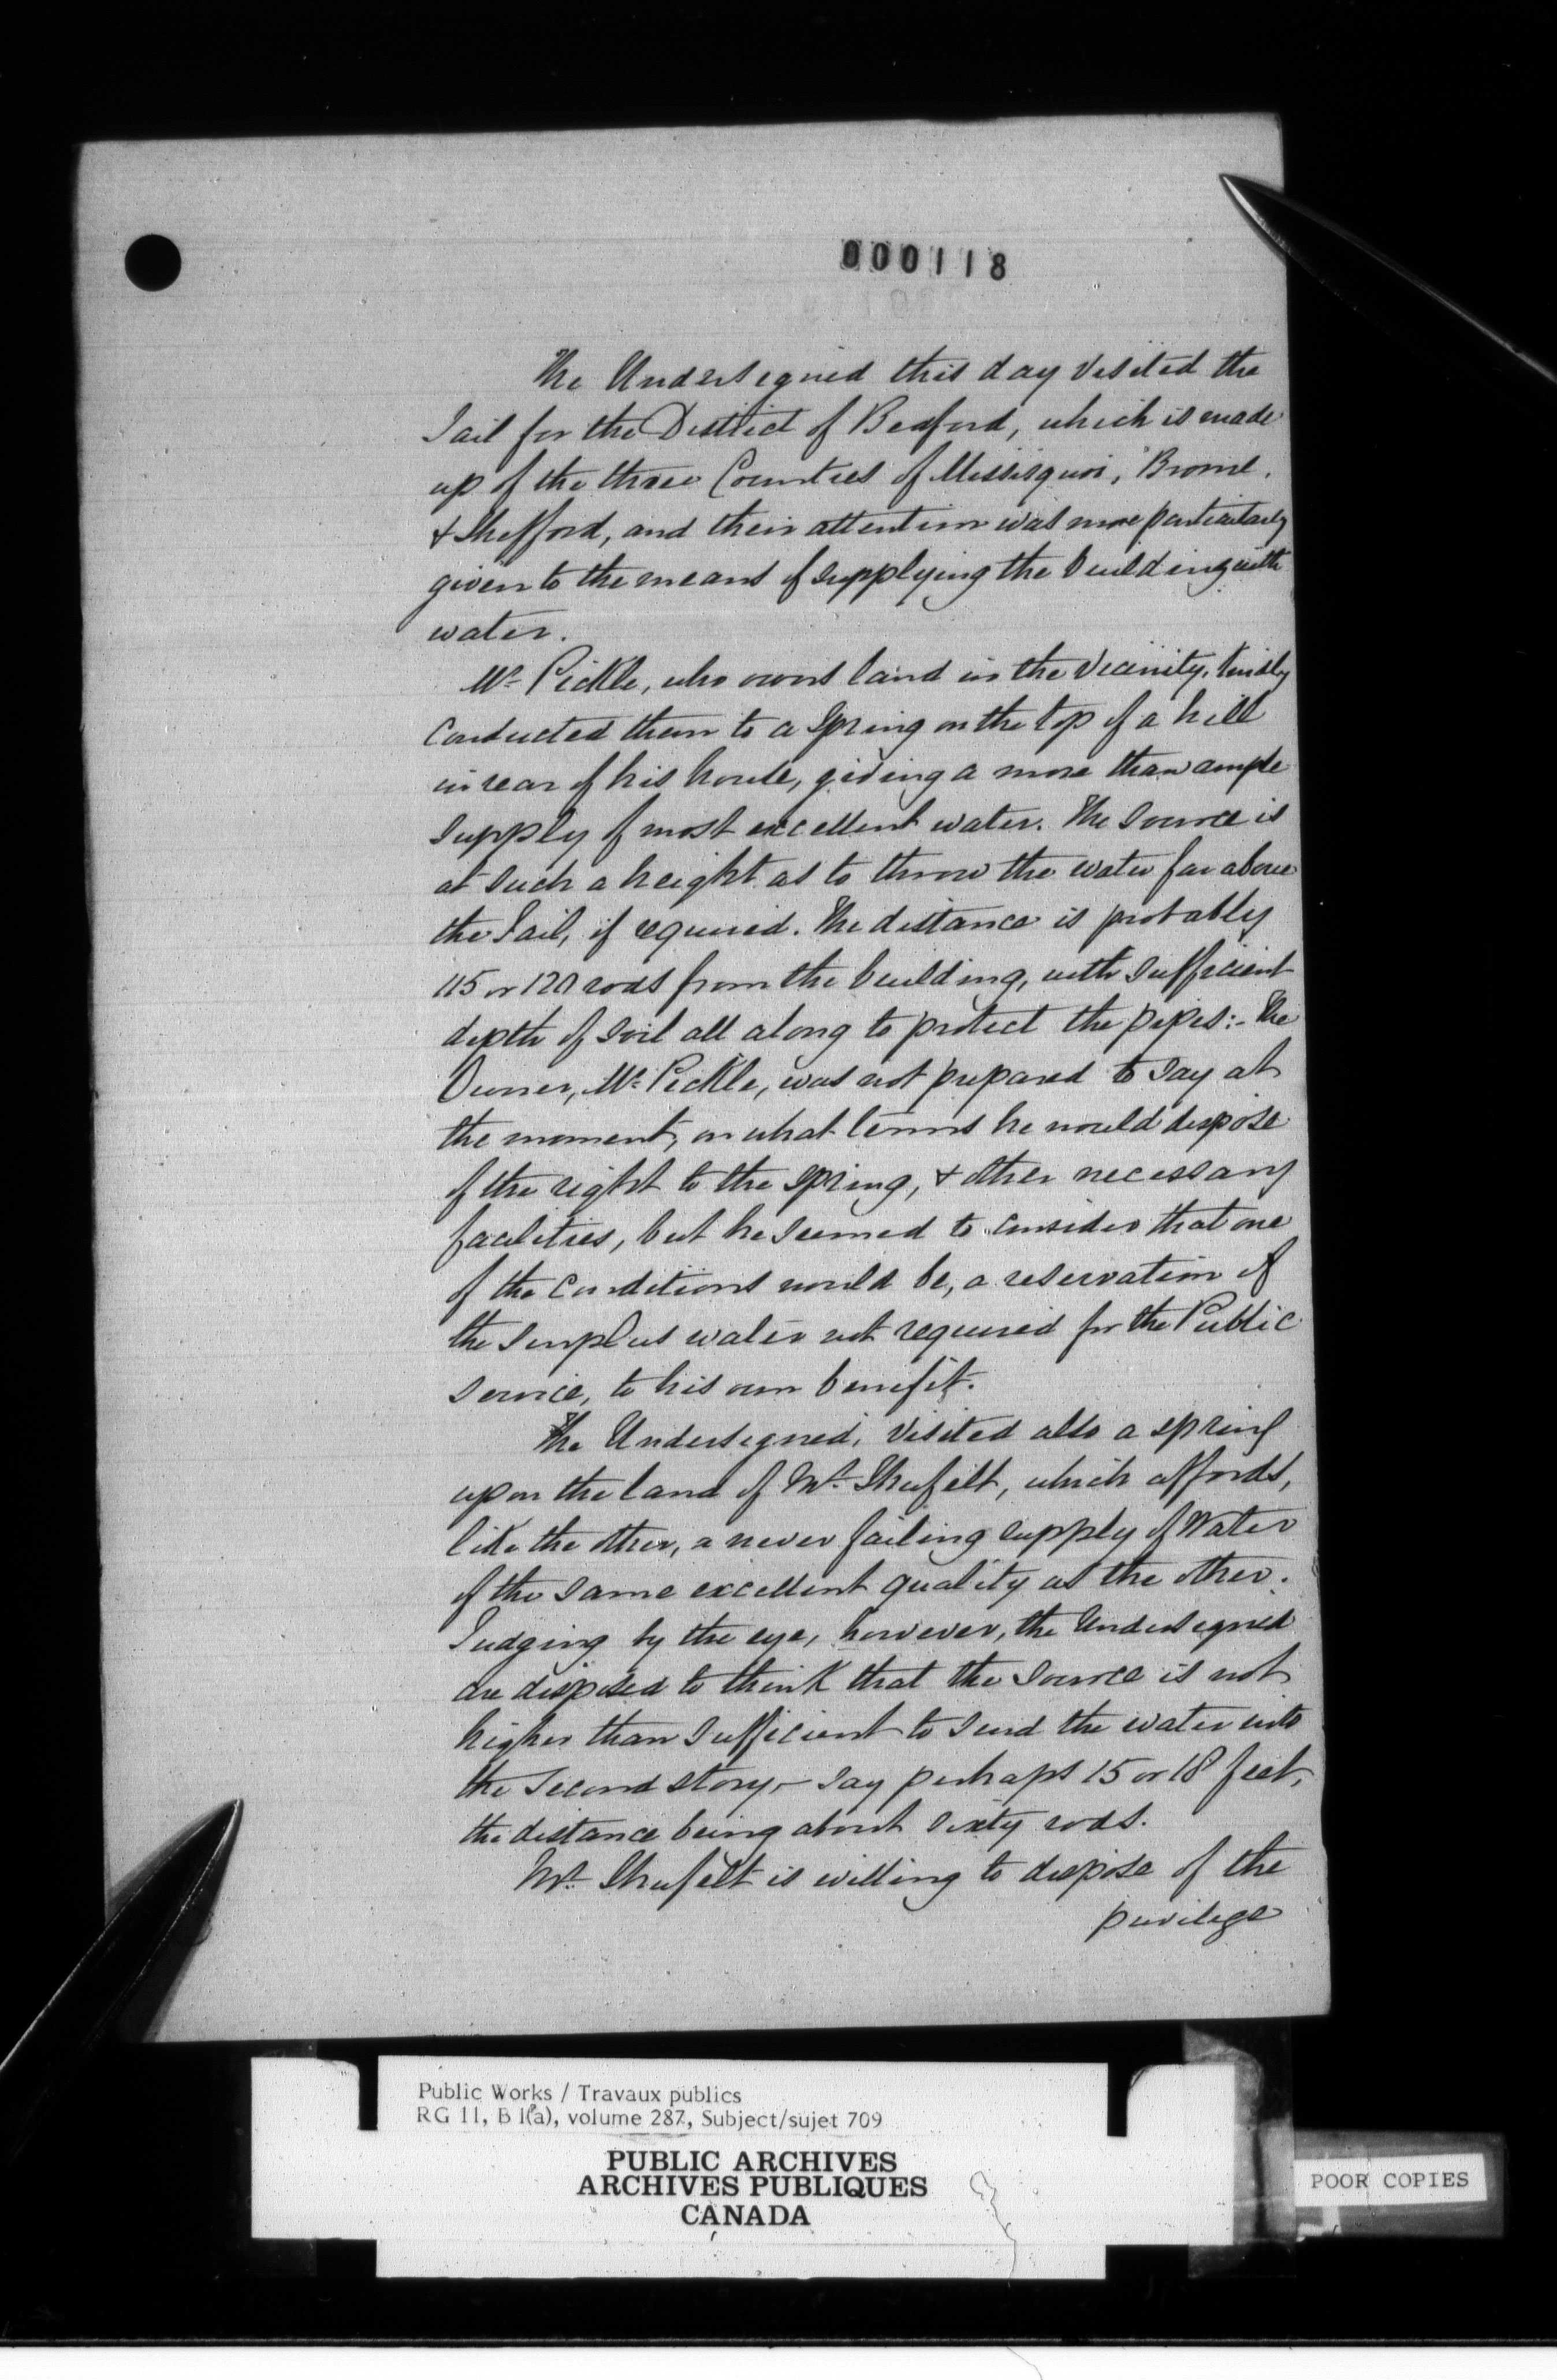 000118
The Undersigned this day visited the
Jail for the District of Bedford, which is made
up of the three Counties of Missisquoi, Brome,
& Shefford, and their attention was more particularly
given to the means of supplying the building with
water.
Mr. Pickle, who owns land in the vicinity, kindly
conducted them to a Spring on the top of a hill
in rear of his house, giving a more than ample
supply of most excellent water. The source is
at such a height as to throw the water far above
the Jail, if required. The distance is probably
115 or 120 rods from the building, with sufficient
depth of soil all along to protect the pipes:- The
Owner, Mr. Pickle, was not prepared to say at
the moment, on what terms he would dispose
of the right to the spring, & other necessary
facilities, but he seemed to consider that one
of the conditions would be, a reservation of
the surplus water not required for the Public
service, to his own benefit.
The Undersigned, visited also a spring
upon the land of Mr. Shufelt, which affords,
like the other, a never failing supply of Water
of the same excellent quality as the other.
Judging by the eye, however, the Undersigned
are disposed to think that the source is not
higher than sufficient to send the water into
the second story,- say perhaps 15 or 18 feet,
the distance being about sixty rods.
Mr. Shufelt is willing to dispose of the
privilege
Public Works / Travaux publics
RG 11, B 1(a), volume 287, Subject/sujet 709
PUBLIC ARCHIVES
ARCHIVES PUBLIQUES
CANADA
POOR COPIES